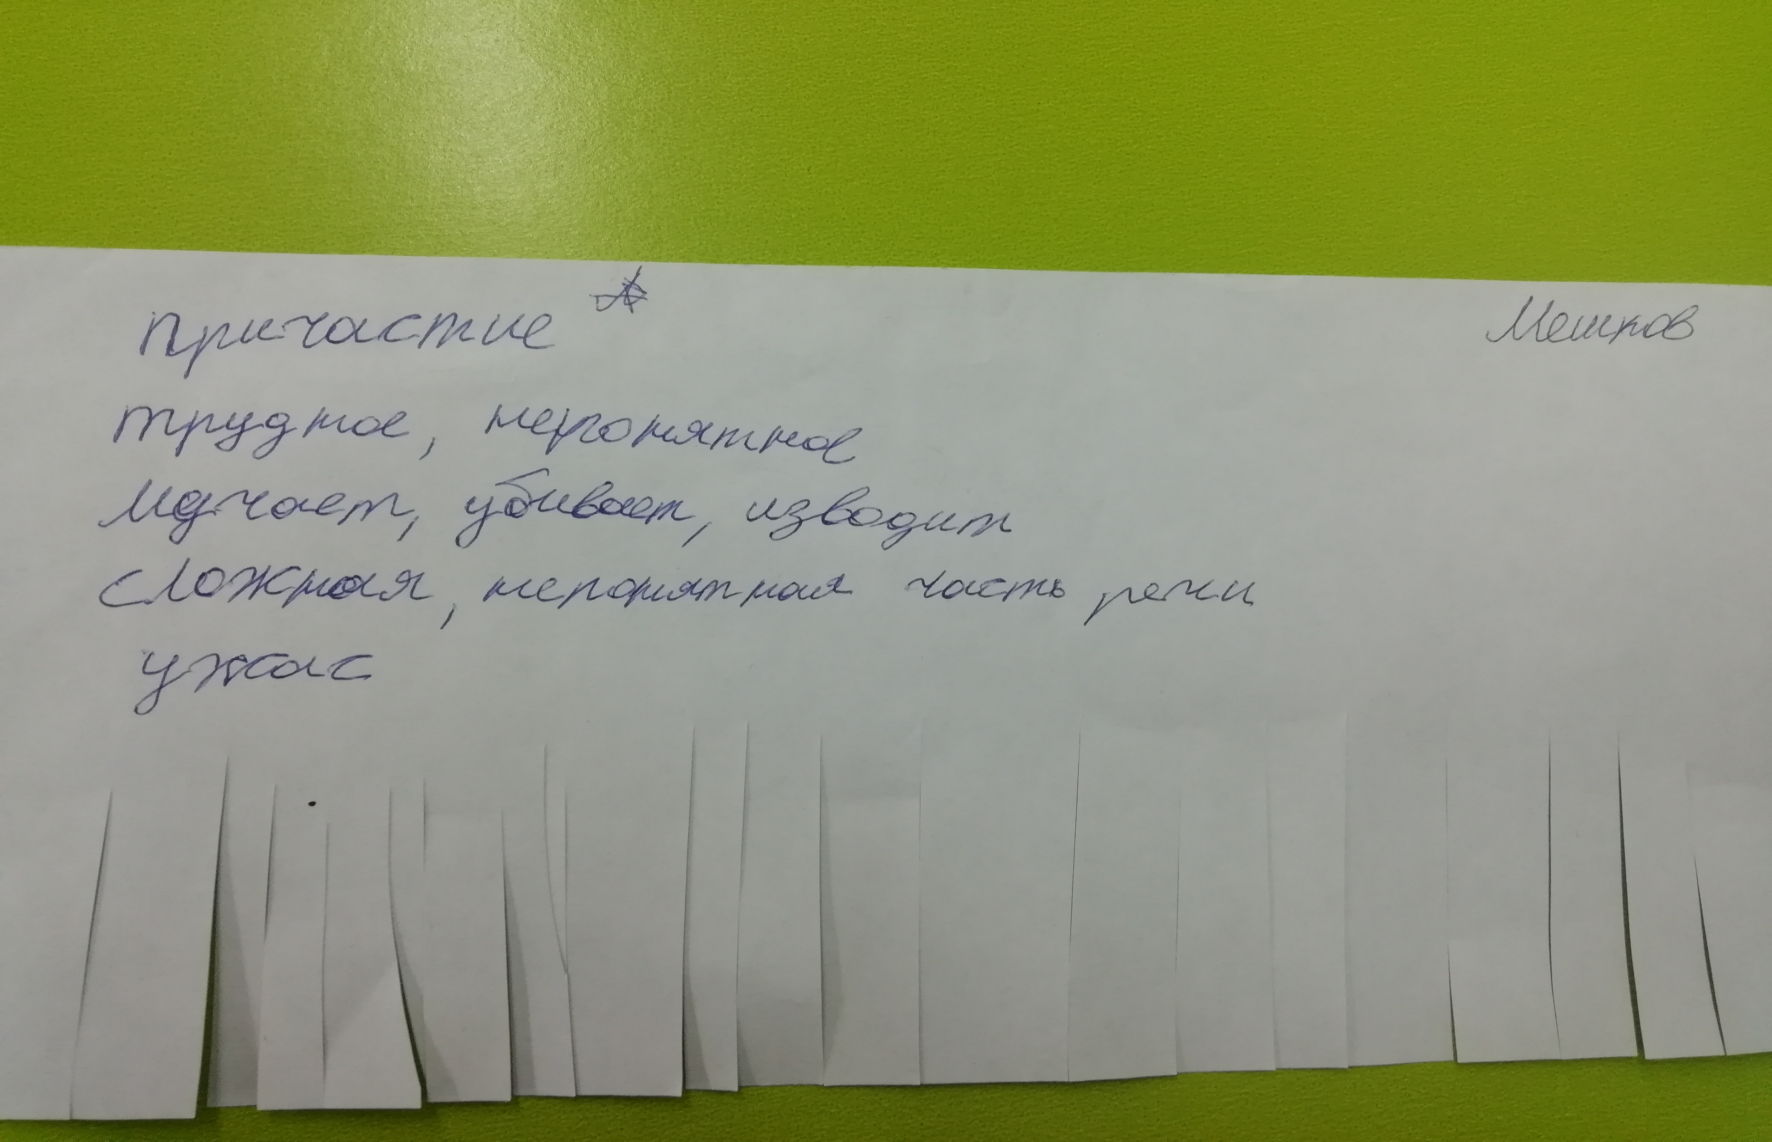 Причастие
Мешков
трудное, непонятное
Мучает, убивает, изводит
сложная, непонятная часть речи
ужас